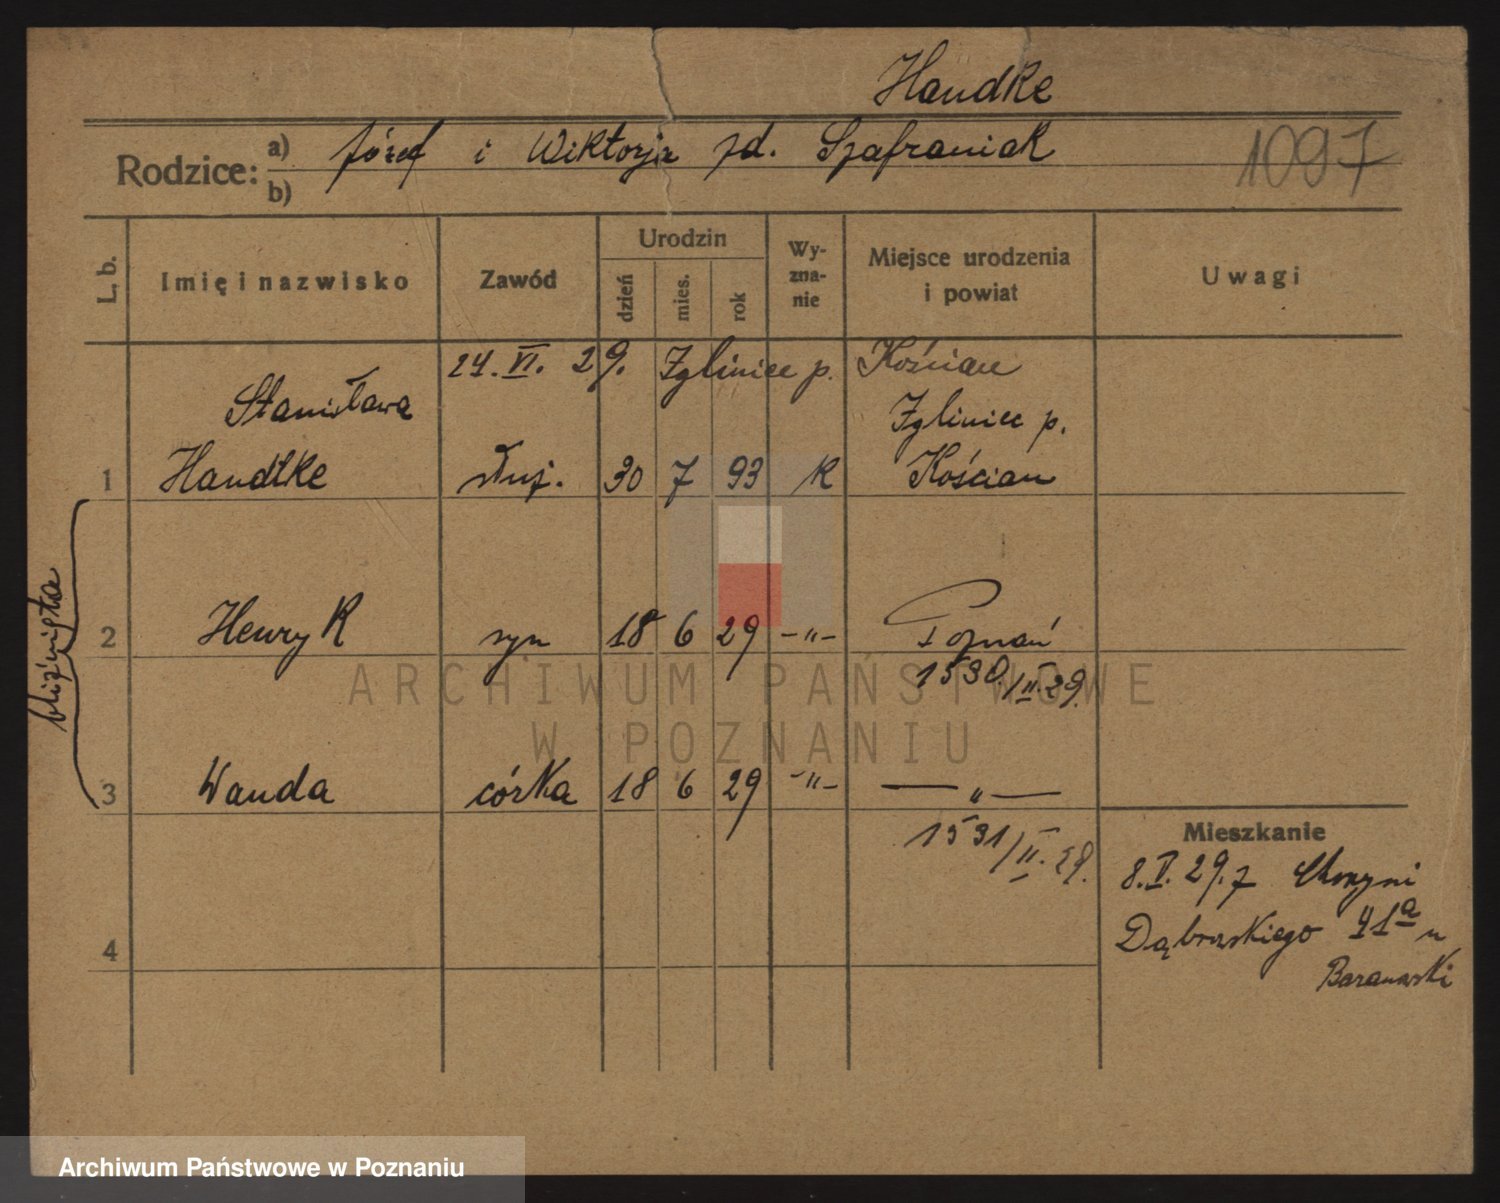 Handke
Rodzice: a) Józef i Wiktorja zd. Szafraniak
b)
1097
L. b. Imię i nazwisko Zawód Urodzin dzień mies. rok Wyznanie Miejsce urodzenia i powiat Uwagi
24. VI. 29. Zgliniec p. Kościan
Stanisława Zgliniec p.
1 Handke służ. 30 7 93 k Kościan
bliźnięta
2 Henryk syn 18 6 29 -"- Poznań
1530/II.29.
3 Wanda córka 18 6 29 -"- — " —
1531/II.29.
Mieszkanie
8.V.29. z
Dąbrowskiego 41a u
4
Baranowski
ARCHIWUM PAŃSTWOWE
W POZNANIU
Archiwum Państwowe w Poznaniu